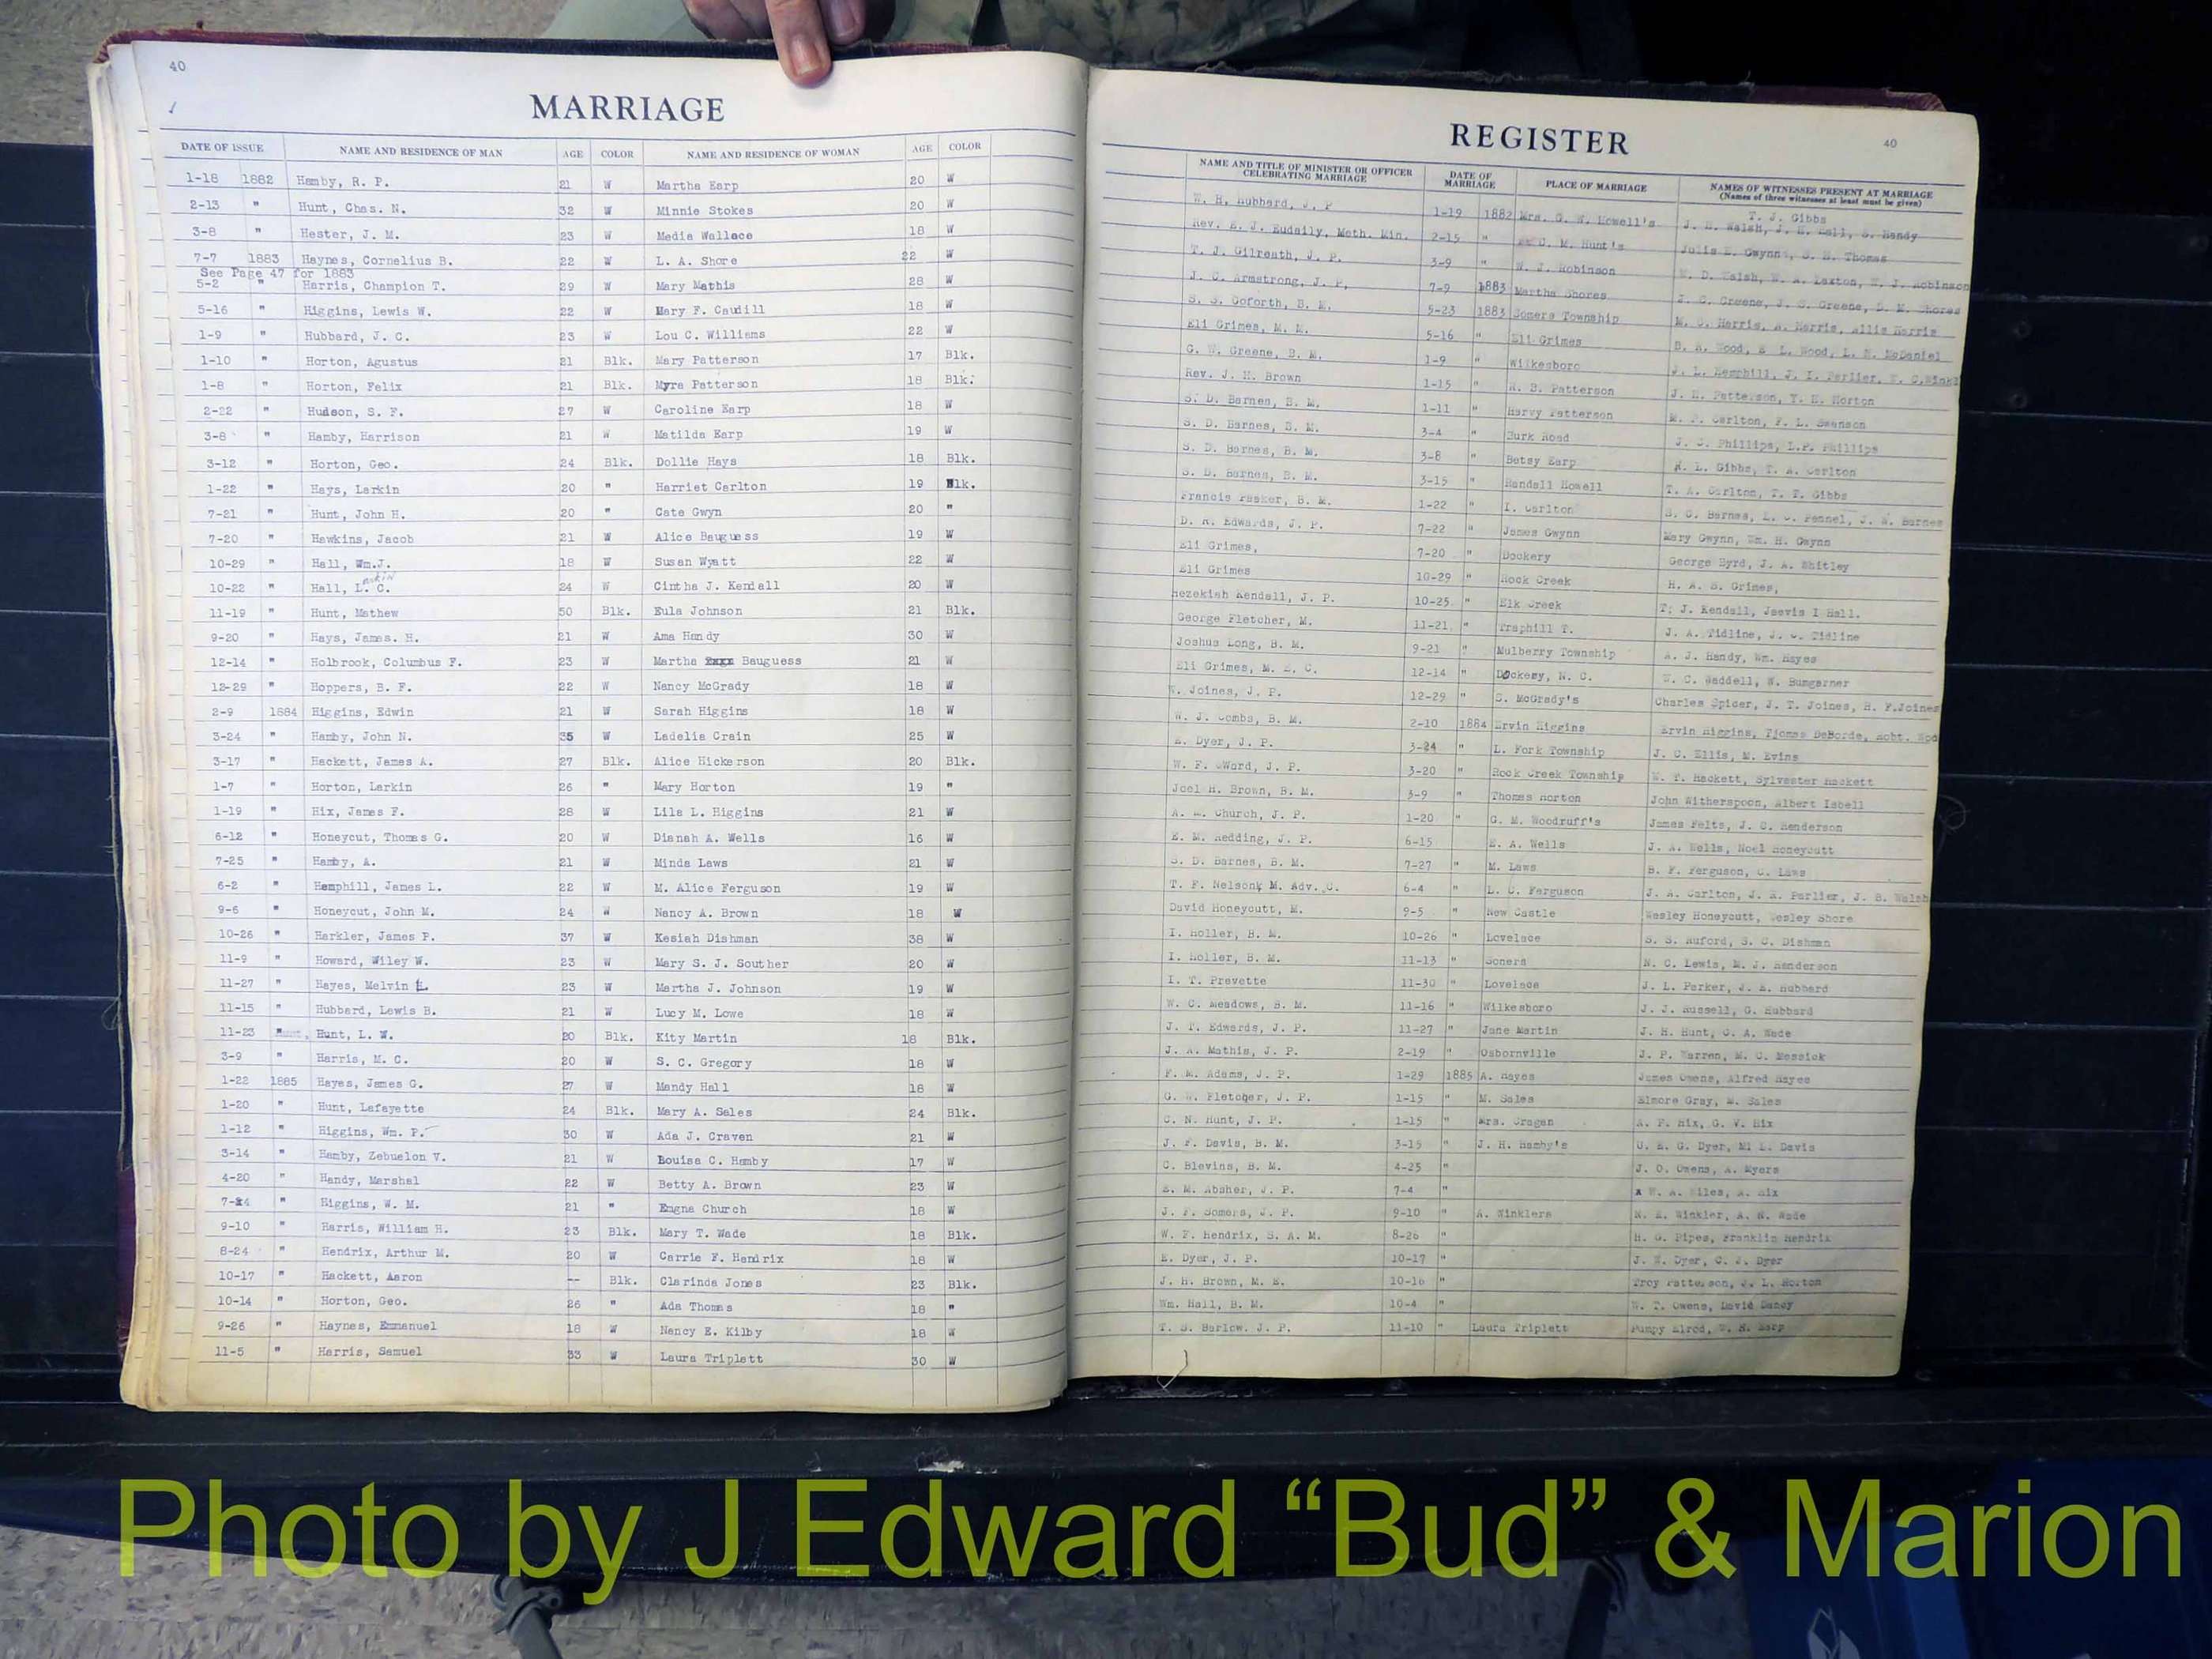 40
MARRIAGE
DATE OF ISSUE NAME AND RESIDENCE OF MAN AGE COLOR NAME AND RESIDENCE OF WOMAN AGE COLOR
1-18 1882 Hamby, R. P. 21 W Martha Earp 20 W
2-13 " Hunt, Chas. N. 32 W Minnie Stokes 20 W
3-8 " Hester, J. M. 23 W Media Wallace 18 W
7-7 1883 Haynes, Cornelius B. 22 W L. A. Shore 22 W
See Page 47 for 1883
5-2 " Harris, Champion T. 29 W Mary Mathis 28 W
5-16 " Higgins, Lewis W. 22 W Mary F. Caudill 18 W
1-9 " Hubbard, J. C. 23 W Lou C. Williams 22 W
1-10 " Horton, Agustus 21 Blk. Mary Patterson 17 Blk.
1-8 " Horton, Felix 21 Blk. Myra Patterson 18 Blk.
2-22 " Hudson, S. F. 27 W Caroline Earp 18 W
3-8 " Hamby, Harrison 21 W Matilda Earp 19 W
3-12 " Horton, Geo. 24 Blk. Dollie Hays 18 Blk.
1-22 " Hays, Larkin 20 " Harriet Carlton 19 Blk.
7-21 " Hunt, John H. 20 " Cate Gwyn 20 "
7-20 " Hawkins, Jacob 21 W Alice Bauguess 19 W
10-29 " Hall, Wm.J. 18 W Susan Wyatt 22 W
10-22 " Hall, L. C. 24 W Cintha J. Kendall 20 W
11-19 " Hunt, Mathew 50 Blk. Eula Johnson 21 Blk.
9-20 " Hays, James. H. 21 W Ama Handy 30 W
12-14 " Holbrook, Columbus F. 23 W Martha Bauguess 21 W
12-29 " Hoppers, B. F. 22 W Nancy McGrady 18 W
2-9 1884 Higgins, Edwin 21 W Sarah Higgins 18 W
3-24 " Hamby, John N. 35 W Ladelia Crain 25 W
3-17 " Hackett, James A. 27 Blk. Alice Hickerson 20 Blk.
1-7 " Horton, Larkin 26 " Mary Horton 19 "
1-19 " Hix, James F. 28 W Lila L. Higgins 21 W
6-12 " Honeycut, Thomas G. 20 W Dianah A. Wells 16 W
7-25 " Hamby, A. 21 W Minda Laws 21 W
6-2 " Hemphill, James L. 22 W M. Alice Ferguson 19 W
9-6 " Honeycut, John M. 24 W Nancy A. Brown 18 W
10-26 " Harkler, James P. 37 W Kesiah Dishman 38 W
11-9 " Howard, Wiley W. 23 W Mary S. J. Souther 20 W
11-27 " Hayes, Melvin L. 23 W Martha J. Johnson 19 W
11-15 " Hubbard, Lewis B. 21 W Lucy M. Lowe 18 W
11-23 " Hunt, L. W. 20 Blk. Kity Martin 18 Blk.
3-9 " Harris, M. C. 20 W S. C. Gregory 18 W
1-22 1885 Hayes, James G. 27 W Mandy Hall 18 W
1-20 " Hunt, Lafayette 24 Blk. Mary A. Sales 24 Blk.
1-12 " Higgins, Wm. P. 30 W Ada J. Craven 21 W
3-14 " Hamby, Zebuelon V. 21 W Louisa C. Hamby 17 W
4-20 " Handy, Marshal 22 W Betty A. Brown 23 W
7-24 " Higgins, W. M. 21 " Emgna Church 18 W
9-10 " Harris, William H. 23 Blk. Mary T. Wade 18 Blk.
8-24 " Hendrix, Arthur M. 20 W Carrie F. Hendrix 18 W
10-17 " Hackett, Aaron -- Blk. Clarinda Jones 23 Blk.
10-14 " Horton, Geo. 26 " Ada Thomas 18 "
9-26 " Haynes, Emmanuel 18 W Nancy E. Kilby 18 W
11-5 " Harris, Samuel 33 W Laura Triplett 30 W
REGISTER
40
NAME AND TITLE OF MINISTER OR OFFICER CELEBRATING MARRIAGE DATE OF MARRIAGE PLACE OF MARRIAGE NAMES OF WITNESSES PRESENT AT MARRIAGE
(Names of three witnesses at least must be given)
T. J. Gibbs
W. H. Hubbard, J. P 1-19 1882 Mrs. G. W. Howell's J. H. Walsh, J. H. Hall, S. Handy
Rev. E. J. Eudaily, Meth. Min. 2-15 " C. M. Hunt's Julia E. Gwynn, S. B. Thomas
T. J. Gilreath, J. P. 3-9 " W. J. Robinson W. D. Walsh, W. A. Laxton, W. J. Robinson
J. C. Armstrong, J. P. 7-9 1883 Martha Shores J. C. Greene, J. S. Greene, D. M. Shores
S. S. Goforth, B. M. 5-23 1883 Somers Township M. C. Harris, A. Harris, Allis Harris
Eli Grimes, M. M. 5-16 " Eli Grimes B. A. Wood, L. Wood, L. N. McDaniel
G. W. Greene, B. M. 1-9 " Wilkesboro J. L. Hemphill, J. I. Parlier, W. C.Winkl
Rev. J. H. Brown 1-15 " R. B. Patterson J. H. Patterson, Y. H. Horton
S. D. Barnes, B. M. 1-11 " Harvy Patterson M. P. Carlton, F. L. Swanson
S. D. Barnes, B. M. 3-4 " Burk Road J. C. Phillips, L.P. Phillips
S. D. Barnes, B. M. 3-8 " Betsy Earp H. L. Gibbs, T. A. Carlton
S. D. Barnes, B. M. 3-15 " Randall Howell T. A. Carlton, T. T. Gibbs
Francis Parker, B. M. 1-22 " I. Carlton S. C. Barnes, L. C. Pennel, J. W. Barnes
D. R. Edwards, J. P. 7-22 " James Gwynn Mary Gwynn, Wm. H. Gwynn
Eli Grimes, 7-20 " Dockery George Byrd, J. A. Whitley
Eli Grimes 10-29 " Rock Creek H. A. S. Grimes,
Hezekiah Kendall, J. P. 10-25 " Elk Creek T. J. Kendall, Jaevis I Hall.
George Fletcher, M. 11-21 " Traphill T. J. A. Tidline, J. C. Tidline
Joshua Long, B. M. 9-21 " Mulberry Township A. J. Handy, Wm. Hayes
Eli Grimes, M. E. C. 12-14 " Dockery, N. C. W. C. Waddell, W. Bumgarner
W. Joines, J. P. 12-29 " S. McGrady's Charles Spicer, J. T. Joines, H. F.Joines
W. J. Combs, B. M. 2-10 1884 Ervin Higgins Ervin Higgins, Tjomas DeBorde, Robt. Woo
E. Dyer, J. P. 3-24 " L. Fork Township J. C. Ellis, M. Evins
W. F. Ward, J. P. 3-20 " Rock Creek Township W. T. Hackett, Sylvester Hackett
Joel H. Brown, B. M. 3-9 " Thomas Horton John Witherspoon, Albert Isbell
A. M. Church, J. P. 1-20 " G. M. Woodruff's James Felts, J. C. Henderson
E. M. Redding, J. P. 6-15 E. A. Wells J. A. Wells, Noel Honeycutt
S. D. Barnes, B. M. 7-27 " M. Laws B. F. Ferguson, C. Laws
T. F. Nelson, M. Adv. C. 6-4 " L. C. Ferguson J. A. Carlton, J. A. Parlier, J. B. Walsh
David Honeycutt, M. 9-5 " New Castle Wesley Honeycutt, Wesley Shore
I. Holler, B. M. 10-26 " Lovelace S. S. Buford, S. C. Dishman
I. Holler, B. M. 11-13 " Somers N. C. Lewis, M. J. Henderson
I. T. Prevette 11-30 " Lovelace J. L. Parker, J. E. Hubbard
W. C. Meadows, B. M. 11-16 " Wilkesboro J. J. Russell, G. Hubbard
J. T. Edwards, J. P. 11-27 " Jane Martin J. H. Hunt, C. A. Wade
J. A. Mathis, J. P. 2-19 " Osbornville J. P. Warren, M. C. Messick
F. M. Adams, J. P. 1-29 1885 A. Hayes James Owens, Alfred Hayes
G. W. Fletcher, J. P. 1-15 " M. Sales Elmore Gray, M. Sales
C. N. Hunt, J. P. 1-15 " Mrs. Cragan A. F. Hix, G. V. Hix
J. F. Davis, B. M. 3-15 " J. H. Hamby's U. E. G. Dyer, Ml L. Davis
C. Blevins, B. M. 4-25 " J. O. Owens, A. Myers
E. M. Absher, J. P. 7-4 " W. A. Wiles, A. Hix
J. F. Somers, J. P. 9-10 " A. Winklers R. E. Winkler, A. N. Wade
W. F. Hendrix, S. A. M. 8-26 " H. G. Pipes, Franklin Hendrix
E. Dyer, J. P. 10-17 " J. W. Dyer, C. J. Dyer
J. H. Brown, M. E. 10-16 " Troy Patterson, J. L. Horton
Wm. Hall, B. M. 10-4 " W. T. Owens, David Dancy
T. S. Barlow. J. P. 11-10 " Laura Triplett Pumpy Elrod, W. H. Earp
Photo by J Edward “Bud” & Marion